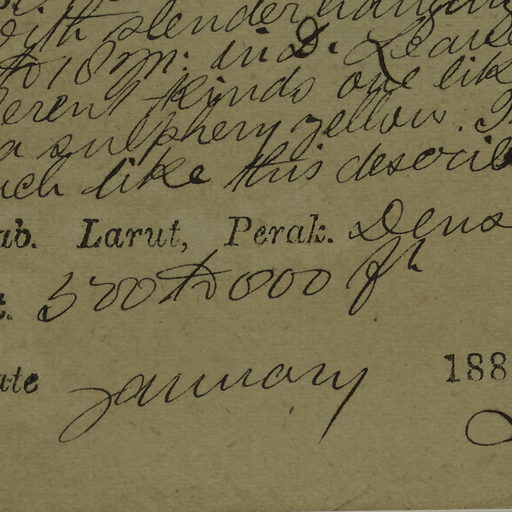 with slender hanging
to 18 m. in D. Leave
erent kinds one lik
a sulphery yellow.
uch like this describ
ab. Larut, Perak. Dens
t. 500 to 800 ft
ate January 188